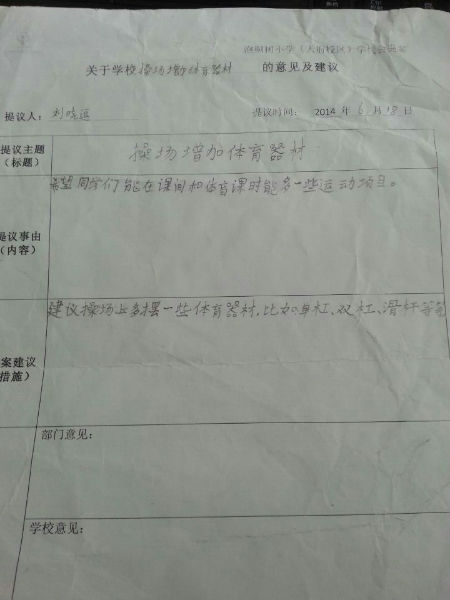 关于学校操场增加体育器材 的意见及建议
提议人： 刘晓 提议时间： 2014 年 6 月 18 日
提议主题
（标题）
操场增加体育器材
希望同学们能在课间和体育课时能多一些运动项目。
提议事由
（内容）
建议操场上多摆一些体育器材，比如单杠、双杠、滑杆等等
案建议
措施）
部门意见：
学校意见：